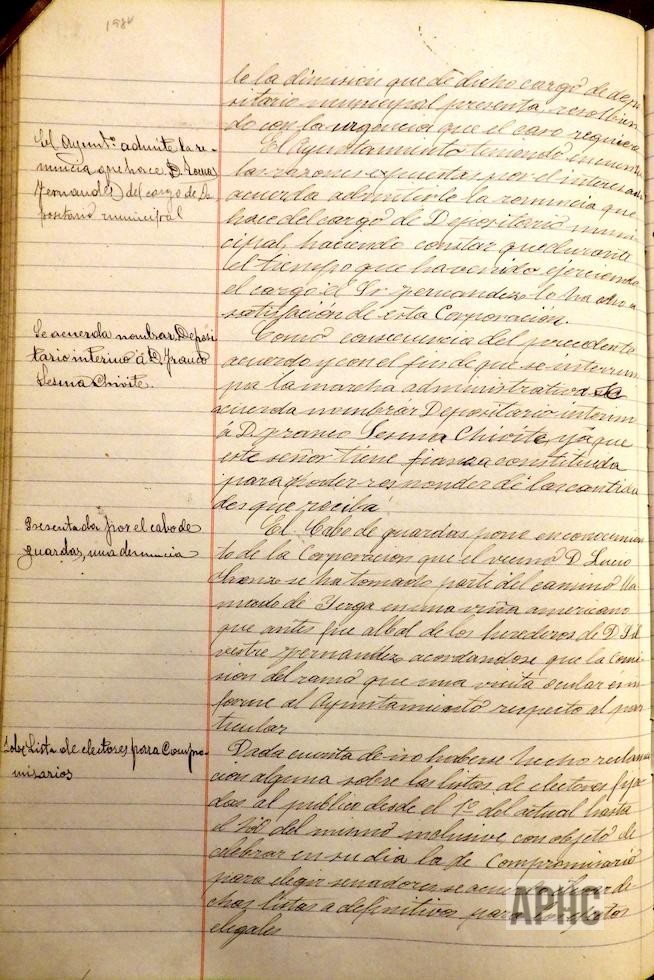 1984
le la dimision que de dicho cargo de depo
sitario municipal presenta, resolvien
do con la urgencia que el caso requiera
El Ayuntº admite la re-
nuncia que hace D.
Fernandez del cargo de De
positario municipal
El Ayuntamiento teniendo en cuenta
las razones expuestas por el interesado
acuerda admitirle la renuncia que
hace del cargo de Depositario muni
cipal, haciendo constar que durante
el tiempo que ha venido ejerciendo
el cargo el Sr Fernandez lo ha
satisfacion de esta Corporacion.
Se acuerda nombrar Deposi
tario interino á D. Franco
Sesma Chivite.
Como consecuencia del precedente
acuerdo y con el fin de que se interrum
pa la marcha administrativa se
acuerda nombrar Depositario interin
á D Franco Sesma Chivite ya que
este señor tiene fianza constituida
para poder responder de las cantida
des que reciba
Presentada por el cabo de
guardas, una denuncia
El Cabo de guardas pone en conocimien
to de la Corporacion que el vecino D Lucio
se ha tomado parte del camino lla
mado de Yerga en una viña americano
que antes fue albal de los herederos de D. Sil
vestre Fernandez, acordandose que la comi
sion del ramo que una visita ocular é in
forme al Ayuntamiento respecto al par
ticular
Sobre Lista de electores para Compro-
misarios
Dada cuenta de no haberse hecho reclama
cion alguna sobre las listas de electores fija
das al publico desde el 1º del actual hasta
el 20 del mismo inclusive, con objeto de
celebrar en su dia la de Compromisario
para elegir senadores se acuerda di
chas listas a definitivas para los efectos
legales
APHC